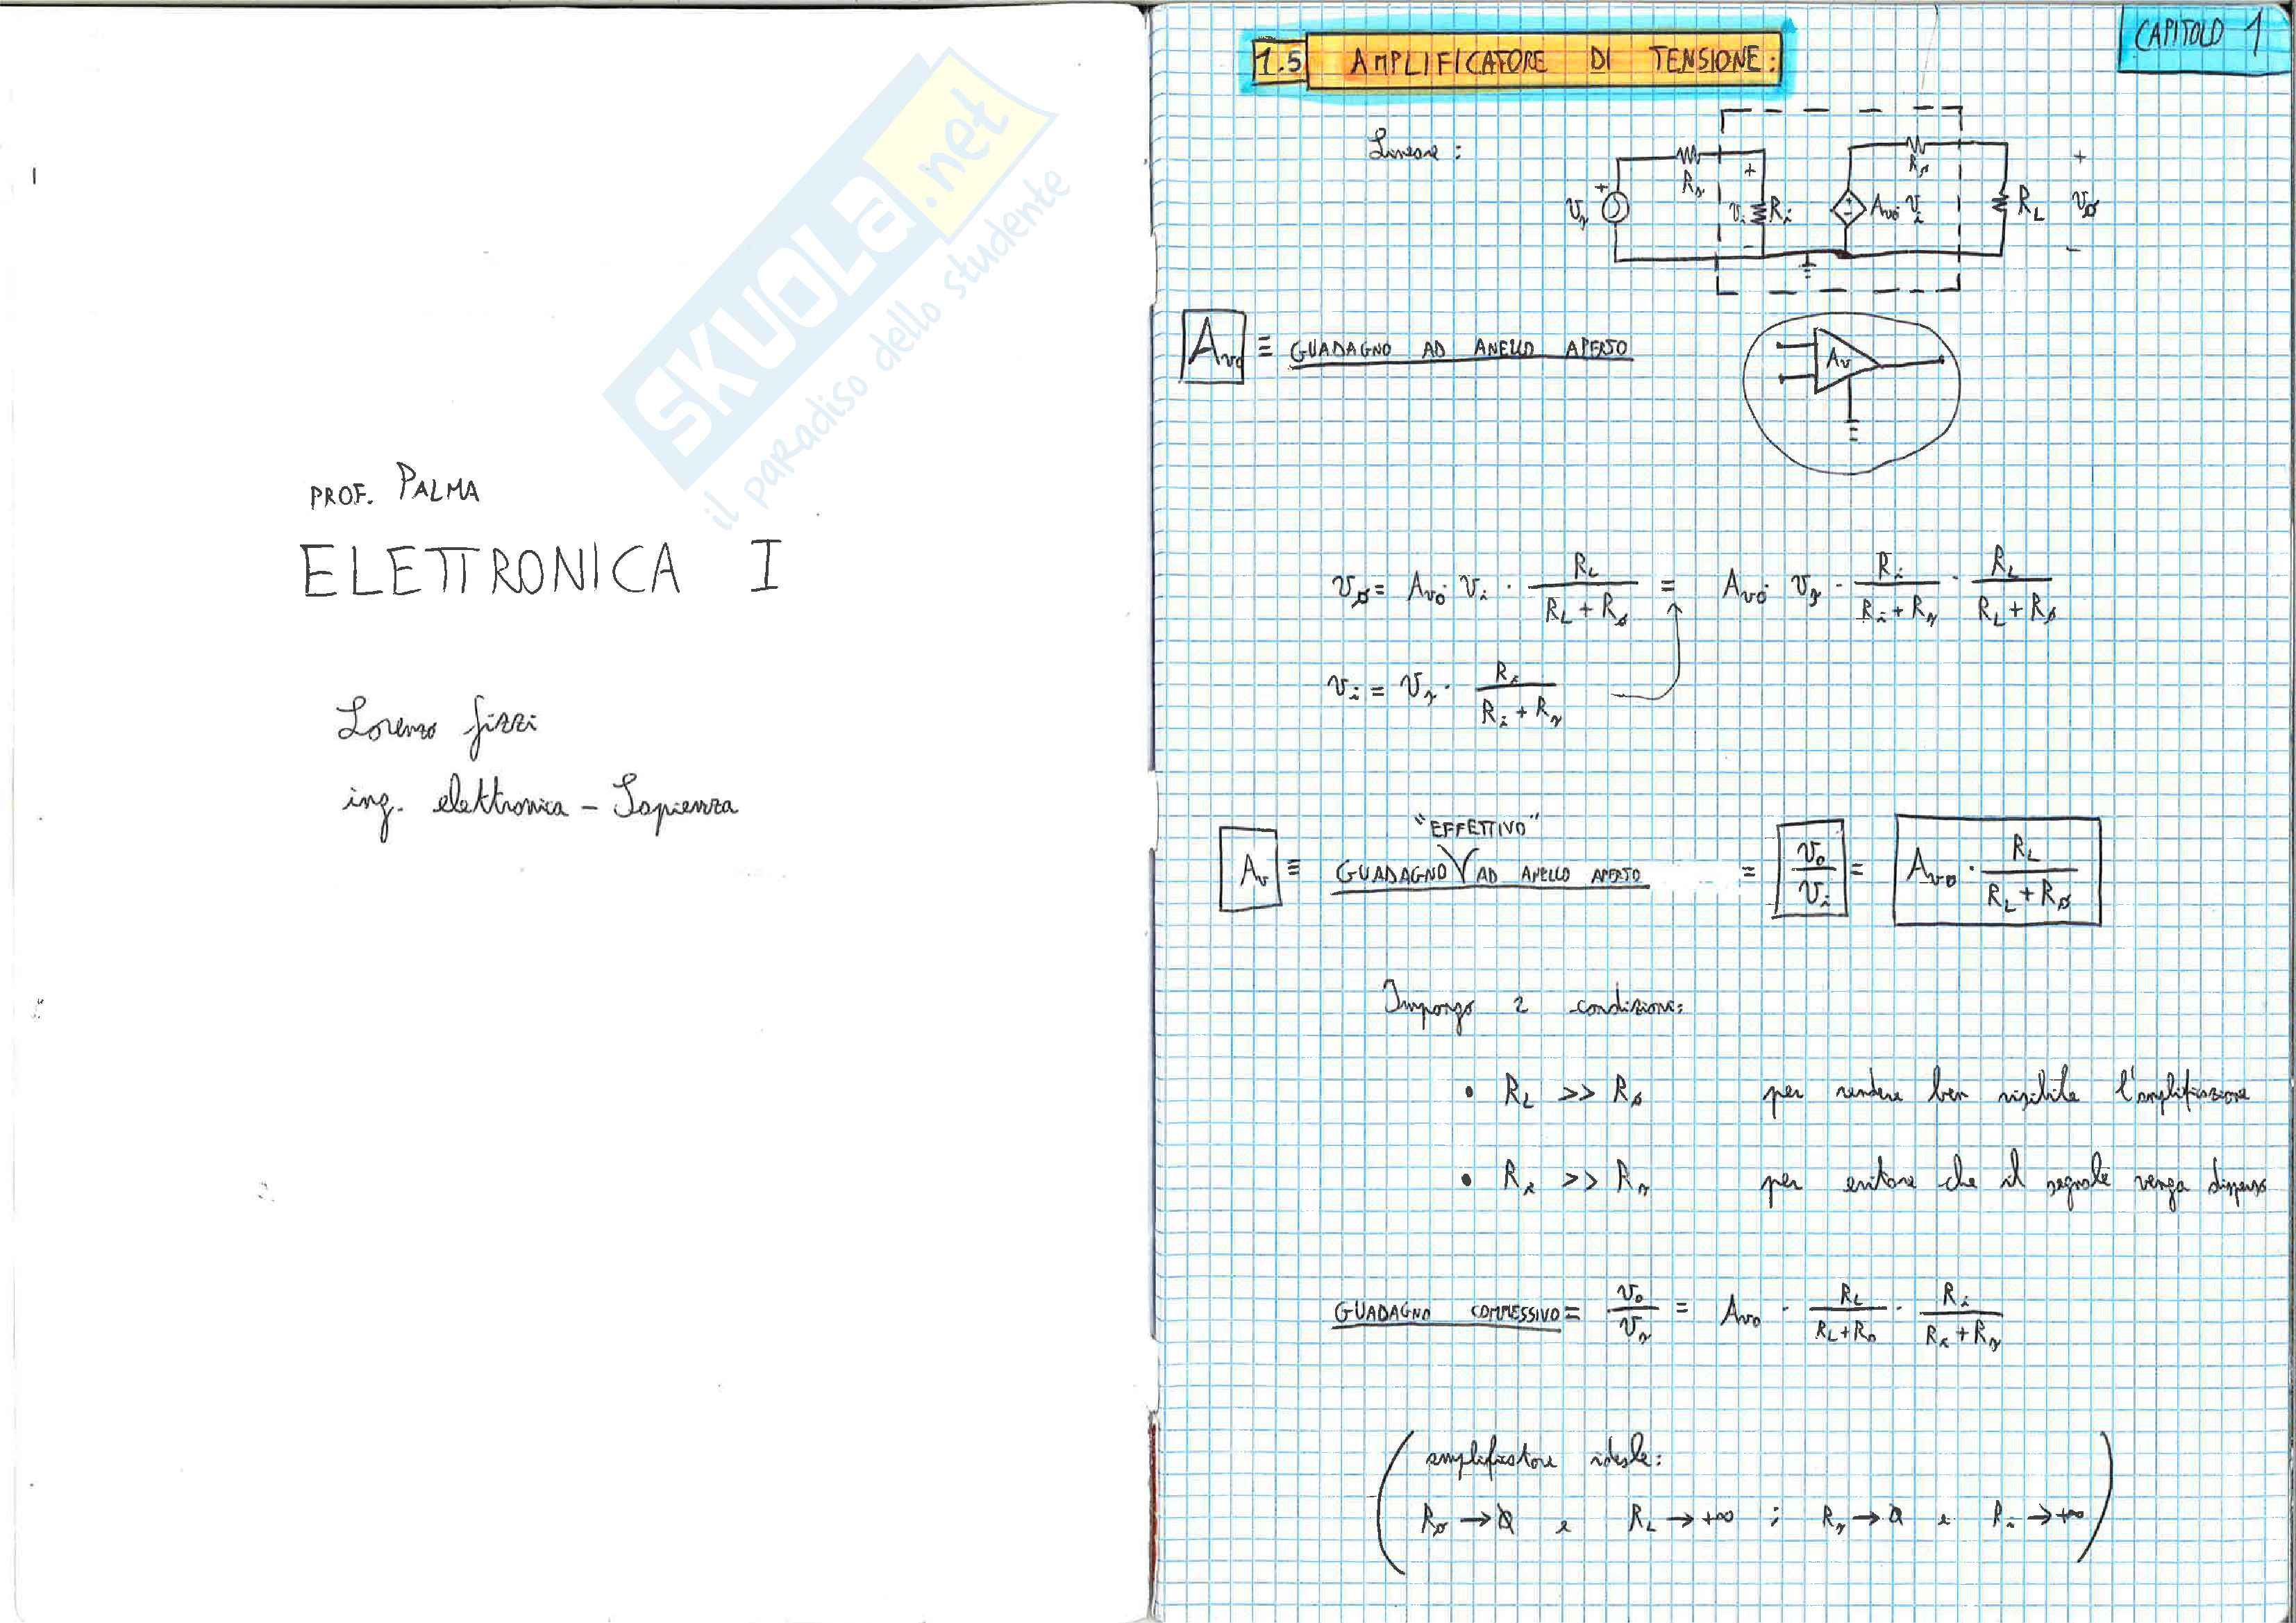 SKUOLA.net
il paradiso dello studente
PROF. PALMA
ELETTRONICA I
Lorenzo fizzi
ing. elettronica - Sapienza
CAPITOLO 1
1.5 AMPLIFICATORE DI TENSIONE:
Lineare:
Vs Rs + vi Ri - Avo vi Ro RL + vo -
Avo ≡ GUADAGNO AD ANELLO APERTO
Av
vo = Avo · vi · RL / (RL + Ro) = Avo · vs · Ri / (Ri + Rs) · RL / (RL + Ro)
vi = vs · Ri / (Ri + Rs)
"EFFETTIVO"
Av ≡ GUADAGNO AD ANELLO APERTO = vo / vi = Avo · RL / (RL + Ro)
Impongo 2 condizioni:
• RL >> Ro per rendere ben visibile l'amplificazione
• Ri >> Rs per evitare che il segnale venga disperso
GUADAGNO COMPLESSIVO = vo / vs = Avo · RL / (RL + Ro) · Ri / (Ri + Rs)
amplificatore ideale:
Ro → 0 e RL → +∞ ; Rs → 0 e Ri → +∞